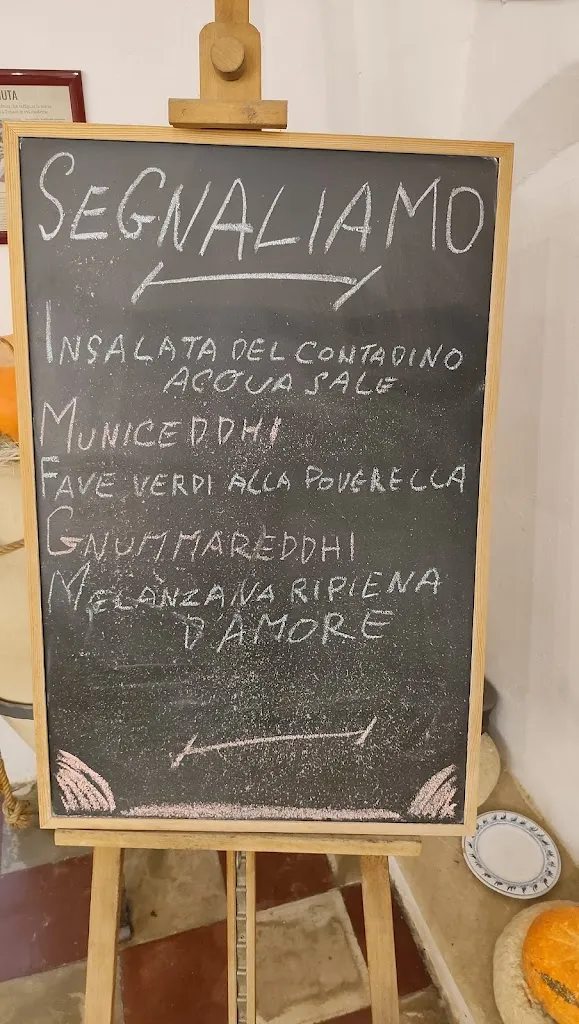 UTA
SEGNALIAMO
INSALATA DEL CONTADINO
ACQUA SALE
MUNICEDDHI
FAVE VERDI ALLA POVERELLA
GNUMMAREDDHI
MELANZANA RIPIENA
D'AMORE